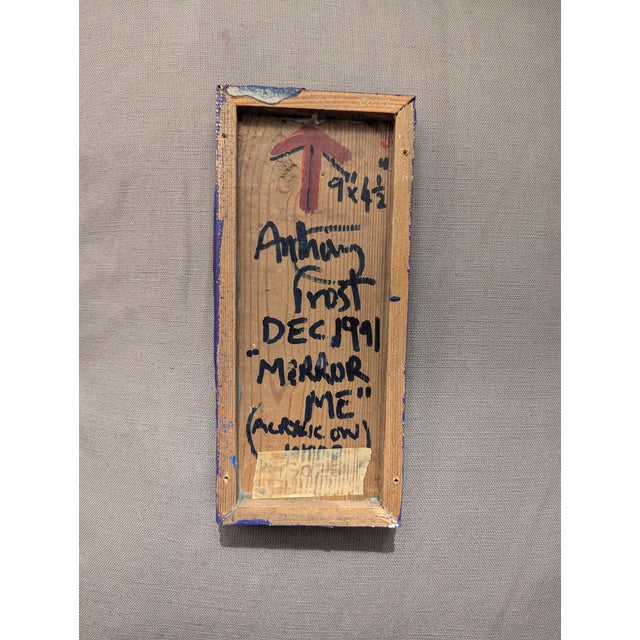 9" x 4½"
Anthony
Frost
DEC 1991
"MIRROR
ME"
(ACRYLIC ON)